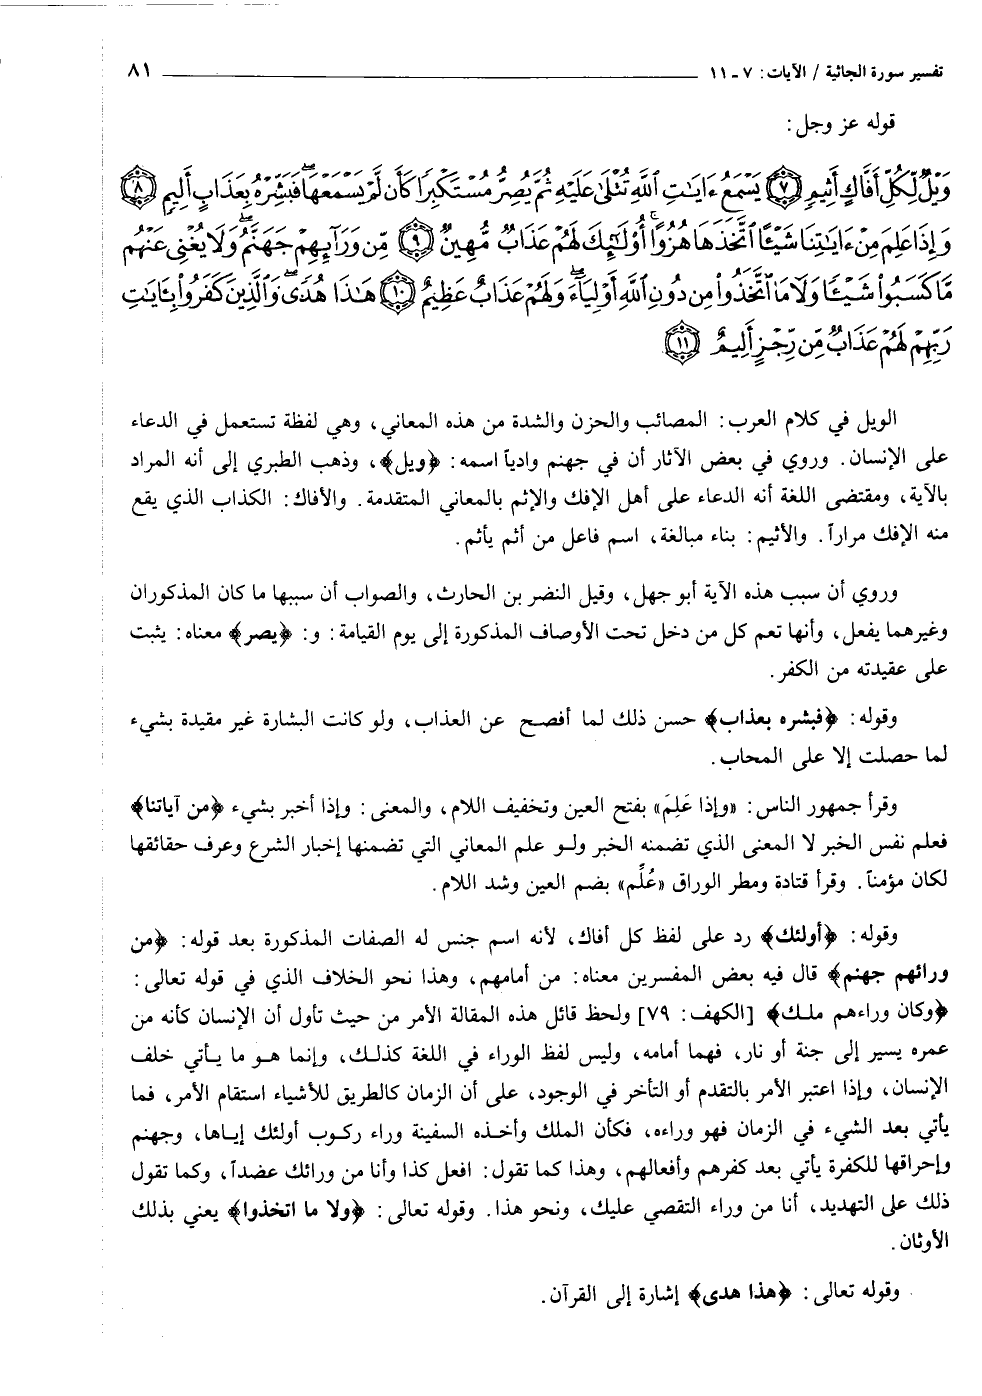 تفسير سورة الجاثية / الآيات: ٧ - ١١ ٨١
قوله عز وجل:
وَيْلٌ لِّكُلِّ أَفَّاكٍ أَثِيمٍ ﴿٧﴾ يَسْمَعُ ءَايَٰتِ ٱللَّهِ تُتْلَىٰ عَلَيْهِ ثُمَّ يُصِرُّ مُسْتَكْبِرًا كَأَن لَّمْ يَسْمَعْهَا ۖ فَبَشِّرْهُ بِعَذَابٍ أَلِيمٍ ﴿٨﴾
وَإِذَا عَلِمَ مِنْ ءَايَٰتِنَا شَيْـًٔا ٱتَّخَذَهَا هُزُوًا ۚ أُو۟لَٰٓئِكَ لَهُمْ عَذَابٌ مُّهِينٌ ﴿٩﴾ مِّن وَرَآئِهِمْ جَهَنَّمُ ۖ وَلَا يُغْنِى عَنْهُم
مَّا كَسَبُوا۟ شَيْـًٔا وَلَا مَا ٱتَّخَذُوا۟ مِن دُونِ ٱللَّهِ أَوْلِيَآءَ ۖ وَلَهُمْ عَذَابٌ عَظِيمٌ ﴿١٠﴾ هَٰذَا هُدًى ۖ وَٱلَّذِينَ كَفَرُوا۟ بِـَٔايَٰتِ
رَبِّهِمْ لَهُمْ عَذَابٌ مِّن رِّجْزٍ أَلِيمٌ ﴿١١﴾
الويل في كلام العرب: المصائب والحزن والشدة من هذه المعاني، وهي لفظة تستعمل في الدعاء
على الإنسان. وروي في بعض الآثار أن في جهنم وادياً اسمه: ﴿ويل﴾، وذهب الطبري إلى أنه المراد
بالآية، ومقتضى اللغة أنه الدعاء على أهل الإفك والإثم بالمعاني المتقدمة. والأفاك: الكذاب الذي يقع
منه الإفك مراراً. والأثيم: بناء مبالغة، اسم فاعل من أثم يأثم.
وروي أن سبب هذه الآية أبو جهل، وقيل النضر بن الحارث، والصواب أن سببها ما كان المذكوران
وغيرهما يفعل، وأنها تعم كل من دخل تحت الأوصاف المذكورة إلى يوم القيامة: و: ﴿يصر﴾ معناه: يثبت
على عقيدته من الكفر.
وقوله: ﴿فبشره بعذاب﴾ حسن ذلك لما أفصح عن العذاب، ولو كانت البشارة غير مقيدة بشيء
لما حصلت إلا على المحاب.
وقرأ جمهور الناس: «وإذا عَلِمَ» بفتح العين وتخفيف اللام، والمعنى: وإذا أخبر بشيء ﴿من آياتنا﴾
فعلم نفس الخبر لا المعنى الذي تضمنه الخبر ولو علم المعاني التي تضمنها إخبار الشرع وعرف حقائقها
لكان مؤمناً. وقرأ قتادة ومطر الوراق «عُلِّم» بضم العين وشد اللام.
وقوله: ﴿أولئك﴾ رد على لفظ كل أفاك، لأنه اسم جنس له الصفات المذكورة بعد قوله: ﴿من
ورائهم جهنم﴾ قال فيه بعض المفسرين معناه: من أمامهم، وهذا نحو الخلاف الذي في قوله تعالى:
﴿وكان وراءهم ملك﴾ [الكهف: ٧٩] ولحظ قائل هذه المقالة الأمر من حيث تأول أن الإنسان كأنه من
عمره يسير إلى جنة أو نار، فهما أمامه، وليس لفظ الوراء في اللغة كذلك، وإنما هو ما يأتي خلف
الإنسان، وإذا اعتبر الأمر بالتقدم أو التأخر في الوجود، على أن الزمان كالطريق للأشياء استقام الأمر، فما
يأتي بعد الشيء في الزمان فهو وراءه، فكأن الملك وأخذه السفينة وراء ركوب أولئك إياها، وجهنم
وإحراقها للكفرة يأتي بعد كفرهم وأفعالهم، وهذا كما تقول: افعل كذا وأنا من ورائك عضداً، وكما تقول
ذلك على التهديد، أنا من وراء التقصي عليك، ونحو هذا. وقوله تعالى: ﴿ولا ما اتخذوا﴾ يعني بذلك
الأوثان.
وقوله تعالى: ﴿هذا هدى﴾ إشارة إلى القرآن.